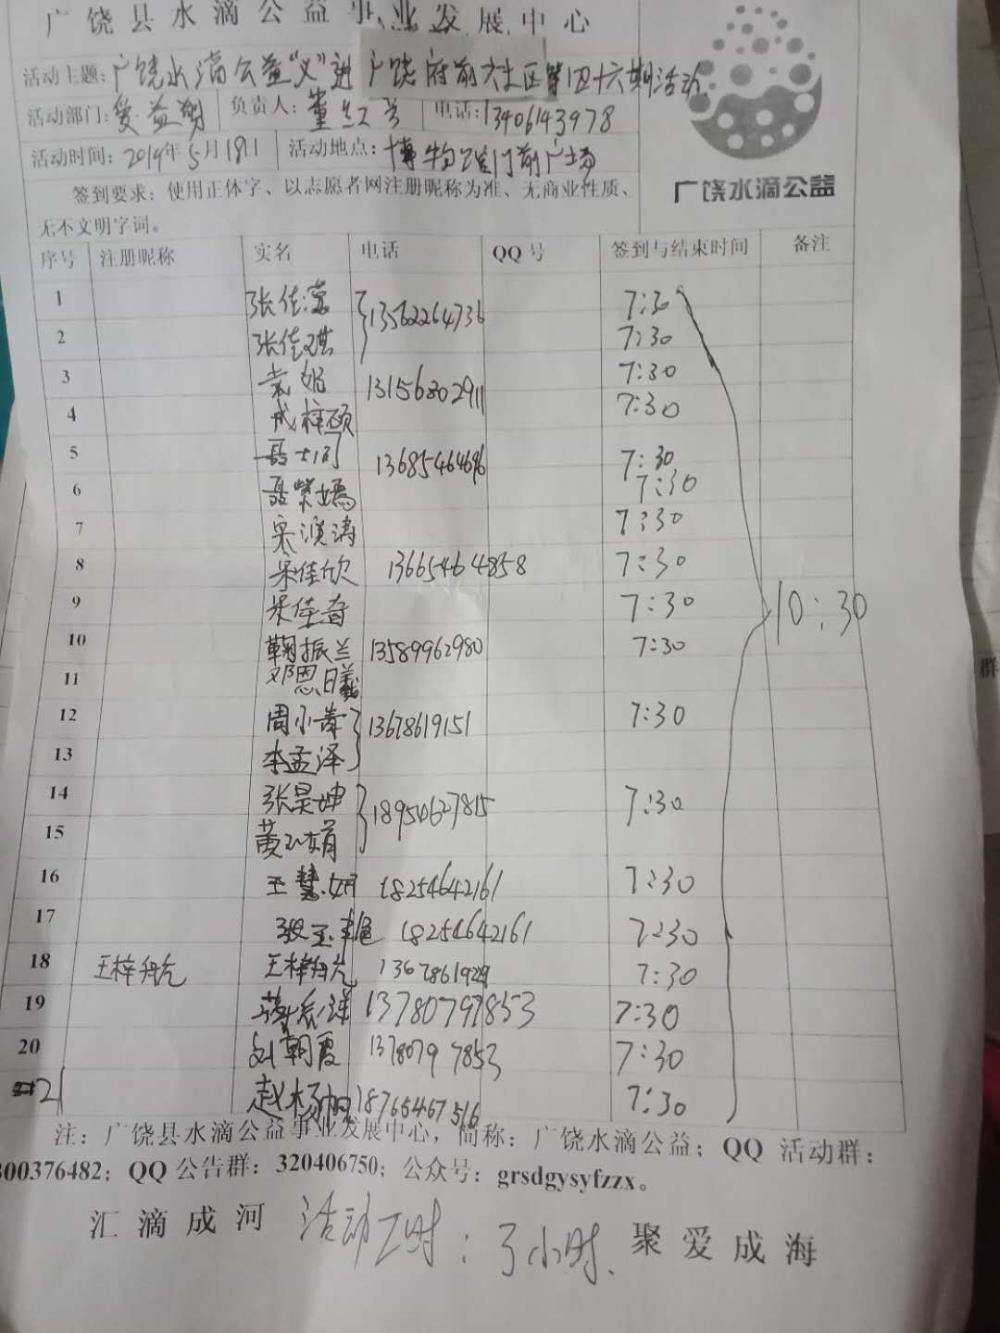 广饶县水滴公益事业发展中心
活动主题：广饶水滴公益"义"进广饶府前大社区第四十六期活动
活动部门：爱益翔 负责人：董红芳 电话：13406143978
活动时间：2019年5月18日 活动地点：博物馆门前广场
签到要求：使用正体字、以志愿者网注册昵称为准、无商业性质、
无不文明字词。
广饶水滴公益
序号 注册昵称 实名 电话 QQ号 签到与结束时间 备注
1 张佳 13562264736 7:30
2 张佳琪 7:30
3 袁妮 13156802911 7:30
4 成梓硕 7:30
5 聂 13685464696 7:30
6 聂紫嫣 7:30
7 宋滨涛 7:30
8 宋佳欣 13665464858 7:30
9 宋佳奇 7:30 10:30
10 鞠振兰 13589962980 7:30
11 邓恩曦
12 周小 13678619151 7:30
13 李孟泽
14 张昊坤 18954627815 7:30
15 黄 娟
16 王慧娟 18254642161 7:30
17 张玉艳 18254642161 7:30
18 王梓航 王梓航 1367861929 7:30
19 13780797853 7:30
20 刘朝霞 13780797853 7:30
21 赵杨帆 18765467516 7:30
注：广饶县水滴公益事业发展中心，简称：广饶水滴公益；QQ 活动群：
300376482；QQ公告群：320406750；公众号：grsdgysyfzzx。
汇滴成河 活动工时：3小时. 聚爱成海